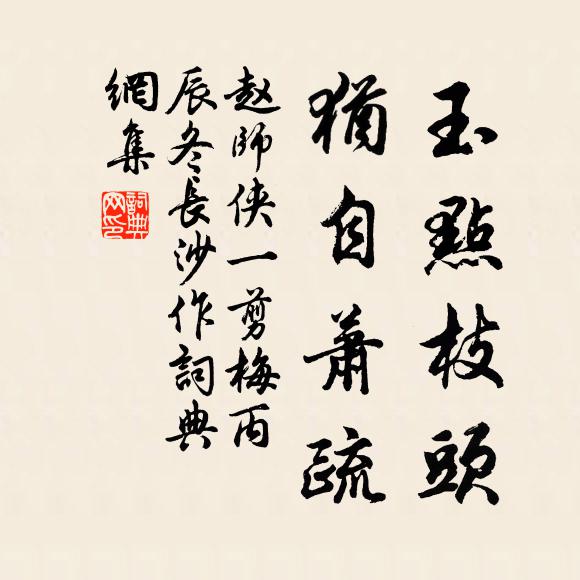 玉點枝頭
猶自蕭疏
赵師侠一剪梅丙
辰冬長沙作詞典
網集
詞典
网印